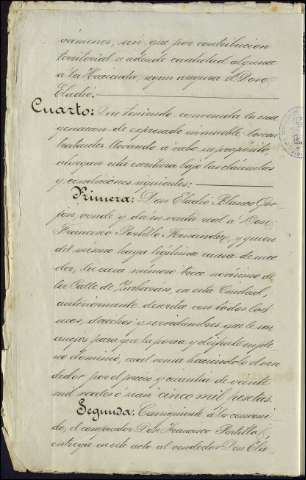 vámenes, sin que por contribucion
territorial se adeude cantidad alguna
á la Hacienda, segun asegura el Don
Eladio.
Cuarto: Que teniendo convenida la ena-
genacion del expresado inmueble los con-
tratantes llevando á cabo su propósito
otorgan esta escritura bajo las cláusulas
y condiciones siguientes:
Primera: Don Eladio Blanco
vende y dá en venta real á Don
Francisco Portillo Hernandez, y quien
del mismo haya legítima causa de suce-
der, la casa número trece novísimo de
la Calle de en esta Ciudad,
anteriormente descrita con todos los
usos, derechos y servidumbres que le son
anejas para que la posea y disfrute en ple-
no dominio, cual venia haciéndolo el ven-
dedor por el precio y cuantía de veinte
mil reales ó sean cinco mil pesetas.
Segunda: Consiguiente á lo conveni-
do, el comprador Don Francisco Portillo,
entrega en este acto al vendedor Don Ela-